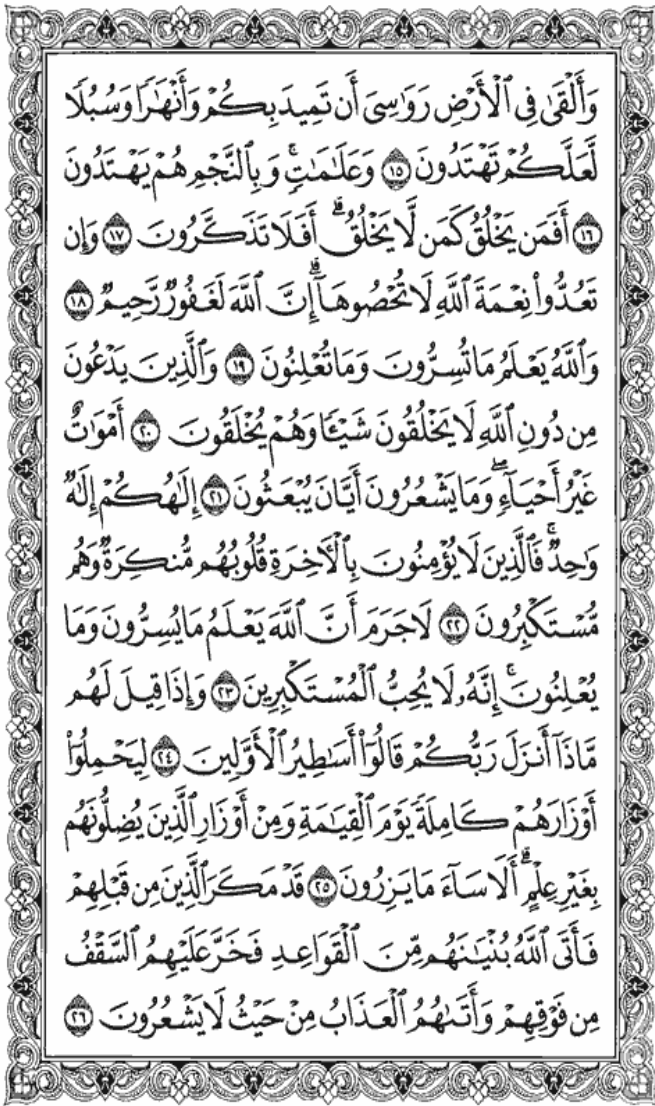 وَأَلْقَىٰ فِى ٱلْأَرْضِ رَوَٰسِىَ أَن تَمِيدَ بِكُمْ وَأَنْهَٰرًا وَسُبُلًا
لَّعَلَّكُمْ تَهْتَدُونَ ١٥ وَعَلَٰمَٰتٍۚ وَبِٱلنَّجْمِ هُمْ يَهْتَدُونَ
١٦ أَفَمَن يَخْلُقُ كَمَن لَّا يَخْلُقُۗ أَفَلَا تَذَكَّرُونَ ١٧ وَإِن
تَعُدُّوا۟ نِعْمَةَ ٱللَّهِ لَا تُحْصُوهَآۗ إِنَّ ٱللَّهَ لَغَفُورٌ رَّحِيمٌ ١٨
وَٱللَّهُ يَعْلَمُ مَا تُسِرُّونَ وَمَا تُعْلِنُونَ ١٩ وَٱلَّذِينَ يَدْعُونَ
مِن دُونِ ٱللَّهِ لَا يَخْلُقُونَ شَيْـًٔا وَهُمْ يُخْلَقُونَ ٢٠ أَمْوَٰتٌ
غَيْرُ أَحْيَآءٍۖ وَمَا يَشْعُرُونَ أَيَّانَ يُبْعَثُونَ ٢١ إِلَٰهُكُمْ إِلَٰهٌ
وَٰحِدٌۚ فَٱلَّذِينَ لَا يُؤْمِنُونَ بِٱلْءَاخِرَةِ قُلُوبُهُم مُّنكِرَةٌ وَهُم
مُّسْتَكْبِرُونَ ٢٢ لَا جَرَمَ أَنَّ ٱللَّهَ يَعْلَمُ مَا يُسِرُّونَ وَمَا
يُعْلِنُونَۚ إِنَّهُۥ لَا يُحِبُّ ٱلْمُسْتَكْبِرِينَ ٢٣ وَإِذَا قِيلَ لَهُم
مَّاذَآ أَنزَلَ رَبُّكُمْ قَالُوٓا۟ أَسَٰطِيرُ ٱلْأَوَّلِينَ ٢٤ لِيَحْمِلُوٓا۟
أَوْزَارَهُمْ كَامِلَةً يَوْمَ ٱلْقِيَٰمَةِ وَمِنْ أَوْزَارِ ٱلَّذِينَ يُضِلُّونَهُم
بِغَيْرِ عِلْمٍۗ أَلَا سَآءَ مَا يَزِرُونَ ٢٥ قَدْ مَكَرَ ٱلَّذِينَ مِن قَبْلِهِمْ
فَأَتَى ٱللَّهُ بُنْيَٰنَهُم مِّنَ ٱلْقَوَاعِدِ فَخَرَّ عَلَيْهِمُ ٱلسَّقْفُ
مِن فَوْقِهِمْ وَأَتَىٰهُمُ ٱلْعَذَابُ مِنْ حَيْثُ لَا يَشْعُرُونَ ٢٦